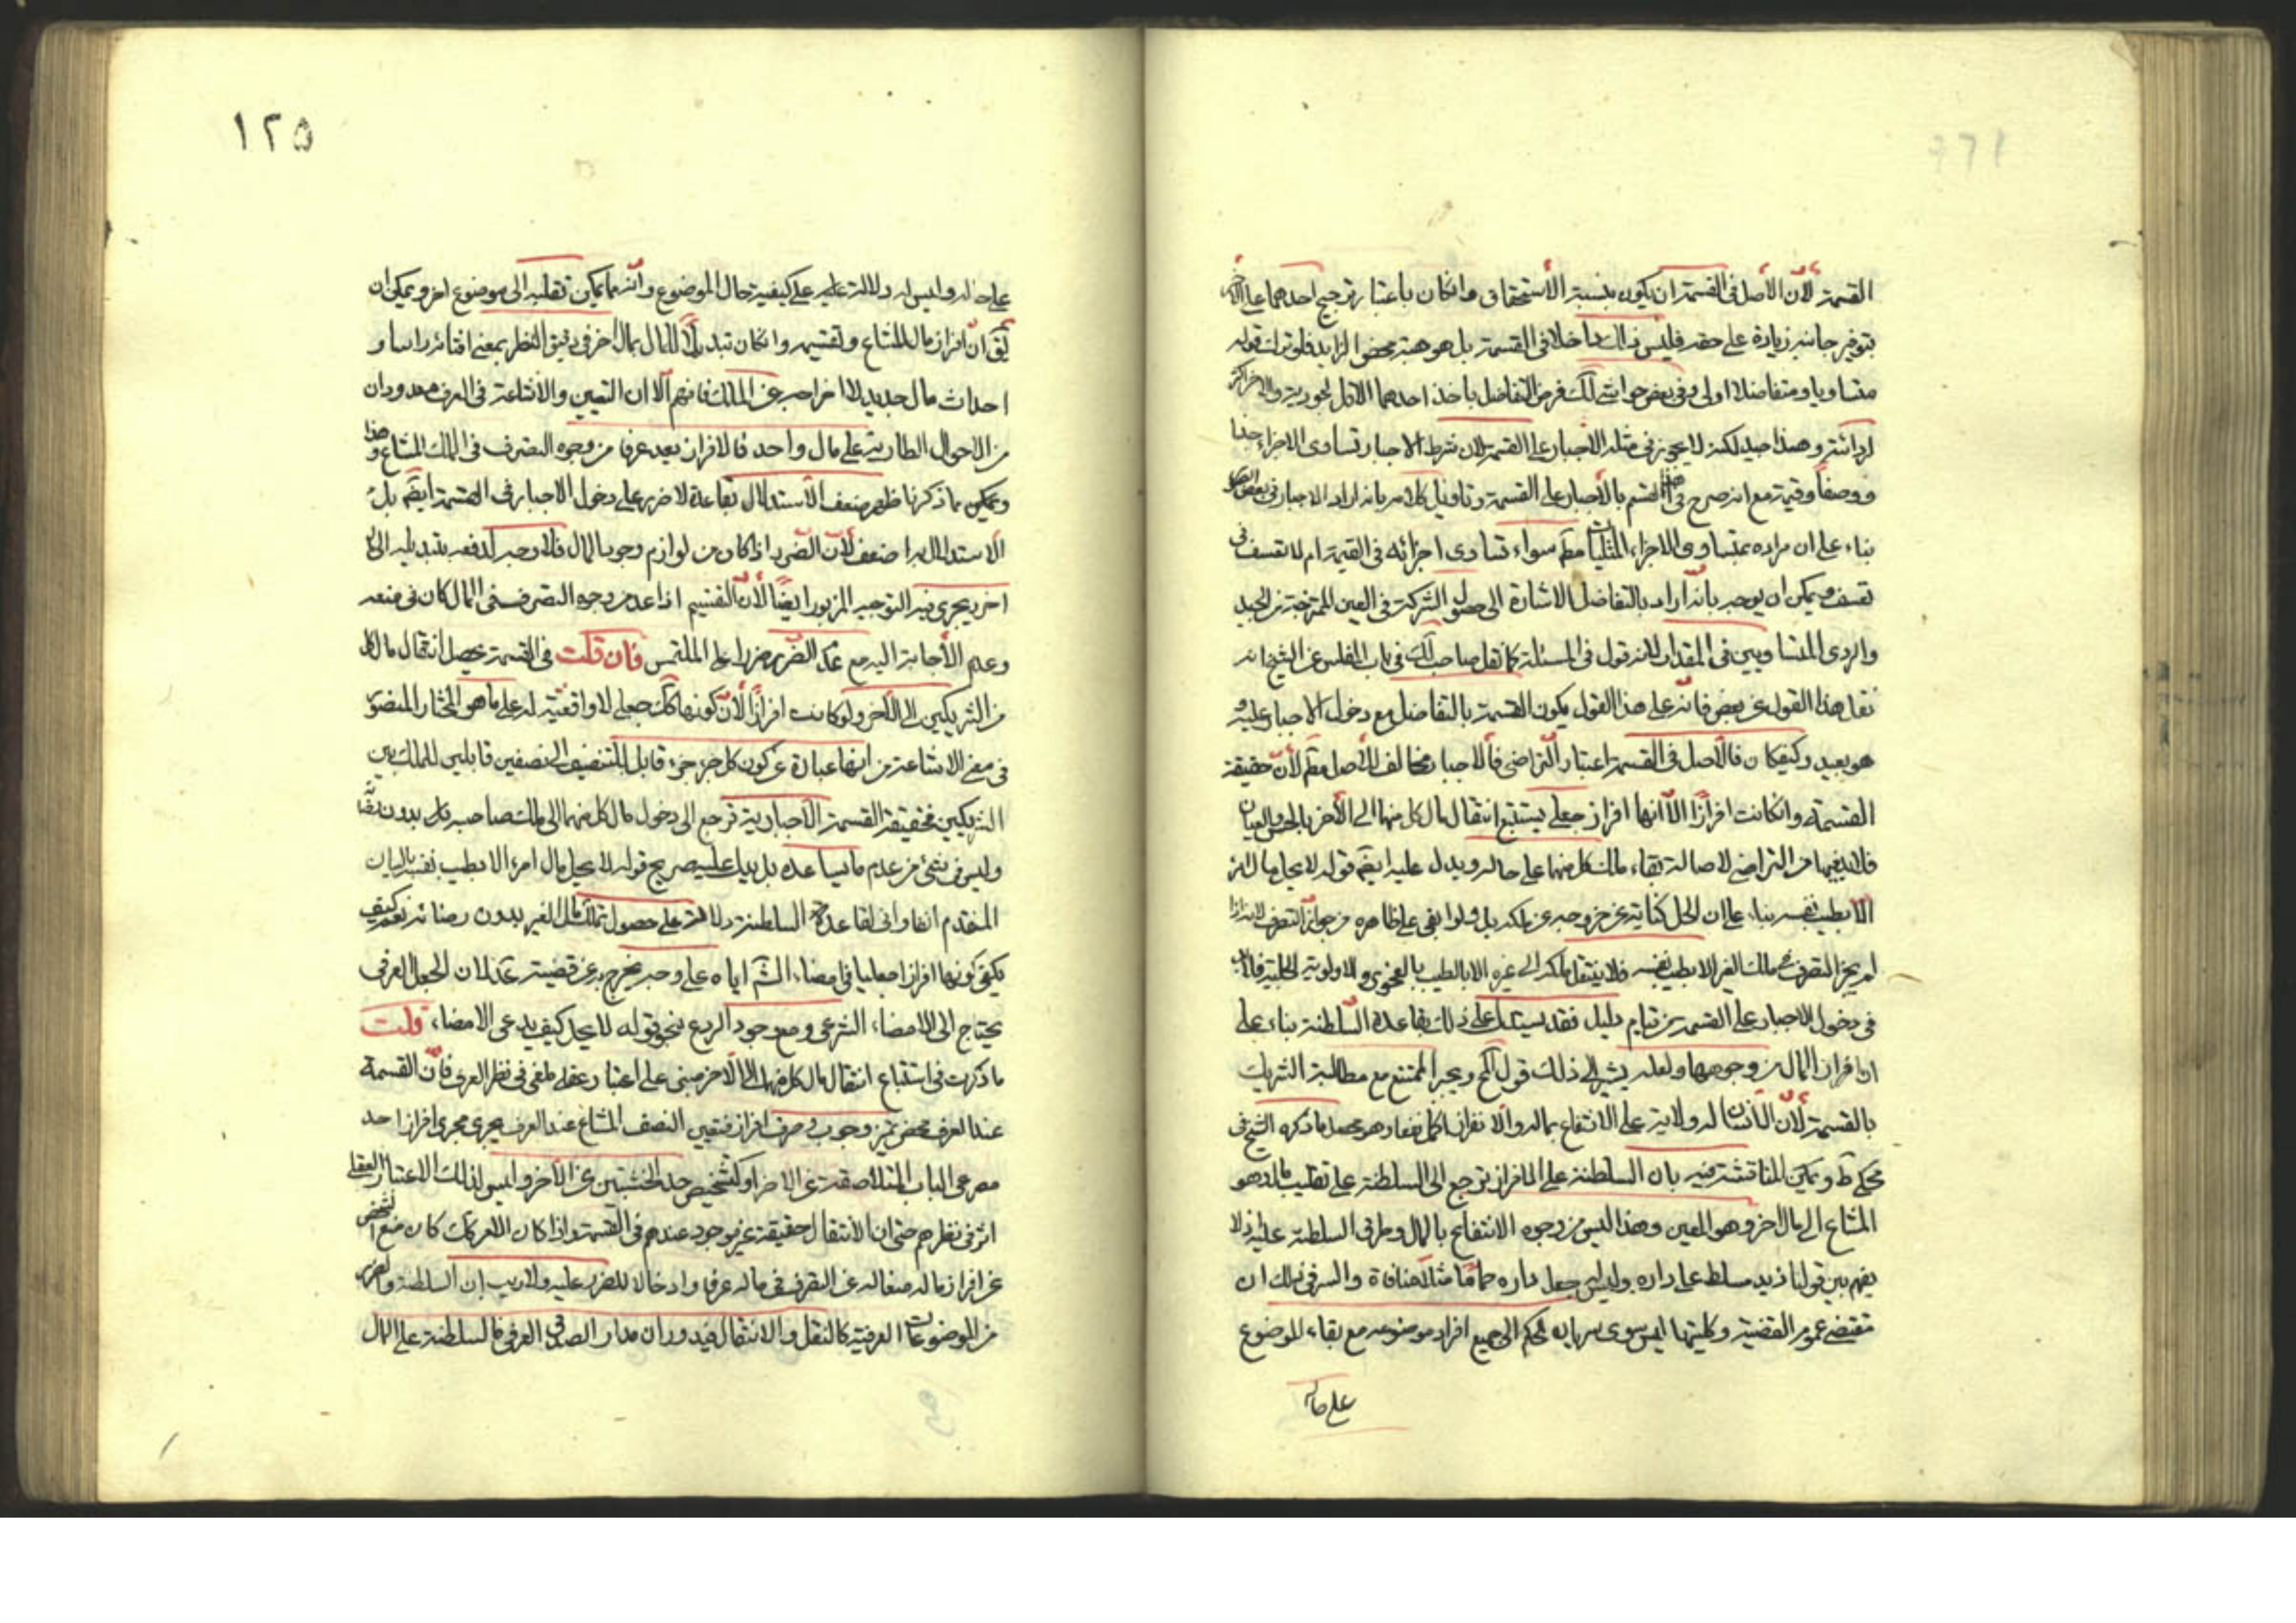 القسمة لأن الأصل فى القسمة ان يكون بنسبة الأستحقاق وانكان باعتبار ترجيح احدهما على الاخر
بتوفير جانبه زيادة على حقه فليس ذلك داخلا فى القسمة بل هو هبة محضو الزايد فلو ترك قوله
متساويا و متفاضلا اولى وفى بعض حواشى لك فرض التفاضل باخذ احدهما الاقل لجودته والاخر اكثر
لردائته وهذا جيد لكنه لا يجوز فى مثله الاجبار على القسمة لان شرط الاجبار تساوى الاجزاء
ووصفاً وقيمة مع انه صرح فى القسم بالأجبار على القسمة وتاويل كلامه بانه اراد الاجبار فى بعض
بناء على ان مراده بمتساوى الاجزاء المثليات مطم سواء تساوى اجزائه فى القيمة ام لا تعسف فى
تعسف ويمكن ان يوجه بانه اراد بالتفاضل الاشارة الى حصول الشركة فى العين الممتزجة من الجيد
والردى المتساويين فى المقدار لانه قول فى المسئلة كما نقل صاحب لك فى باب الفلس عن الشيخ انه
نقل هذا القول عن بعض فانه على هذا القول يكون القسمة بالتفاضل مع دخول الاجبار عليه و
هو بعيد وكيفكان فالأصل فى القسمة اعتبار التراضى فالاجبار مخالف للأصل مطم لأن حقيقة
القسمة وانكانت افرازا الا انها افراز جعلى يستتبع انتقال مال كل منهما الى الأخر بالحس والعيان
فلابد فيها من التراضى لاصالة بقاء ملك كل منهما على حاله ويدل عليه ايضم قوله لا يحل مال امرء
الا بطيب نفسه بناء على ان الحل كناية عن خروجه عن ملكه بل ولو ابقى على ظاهره من جواز التصرف لانه اذا
لم يجز التصرف فى ملك الغير الا بطيب نفسه فلا ينتقل ملكه الى غيره الا بالطيب بالفحوى والاولوية الجلية فلابد
فى دخول الاجبار على القسمة من قيام دليل فقد يستدل على ذلك بقاعدة السلطنة بناء على
ان افراز المال من وجوهها ولعله يشير الى ذلك قول المح ويجبر الممتنع مع مطالبة الشريك
بالقسمة لأن الانسان له ولاية على الانتفاع بماله والانفراد اكمل نفعا وهو محصل ما ذكره الشيخ فى
محكى ط ويمكن المناقشة فيه بان السلطنة على الافراز ترجع الى السلطنة على تقليب ماله وهو
المشاع الى مال اخر وهو المعين وهذا ليس من وجوه الانتفاع بالمال وطرق السلطنة عليه اذ لا
يفهم بين قولنا زيد مسلط على داره وليس له جعل داره حماما مثلا منافاة والسر فى ذلك ان
مقتضى عموم القضية وكليتها ليس سوى سريان الحكم الى جميع افراد موضوعه مع بقاء الموضوع
على حاله
١٢٥
على حاله وليس له دلالة عليه على كيفية حال الموضوع وانه مما يمكن تقلبه الى موضوع اخر ويمكن ان
يق ان افراز مال المشاع وتقسيمه وانكان تبديلا للمال بمال اخر فى دقيق النظر بمعنى افنائه راسا و
احداث مال جديد لا اخراجه عن الملك فافهم الا ان التعيين والاشاعة فى العرف معدودان
من الاحوال الطارية على مال واحد فالافراز يعد عرفا من وجوه التصرف فى الملك المشاع هذا
ويمكن بما ذكرنا ظهر ضعف الأستدلال بقاعدة لا ضرر على دخول الاجبار فى القسمة ايضم بل
الاستدلال بها اضعف لأن الضرر اذا كان من لوازم وجود المال فلا وجه لدفعه بتبديله الى
اخر يجرى فيه التوجيه المزبور ايضا لأن التقسيم اذا عد من وجوه التصرف فى المال كان فى منعه
وعدم الأجابة اليه مع عدم الضرر ضررا على الملتمس فان قلت فى القسمة يحصل انتقال مال كل
من الشريكين الى الأخر ولو كانت افرازا لأن كونها كك جعلى لا واقعية له على ما هو المختار المنصور
فى معنى الاشاعة من انها عبارة عن كون كل جزء جزء قابل للتنصيف الى نصفين قابلين للملك بين
الشريكين فحقيقة القسمة الاجبارية ترجع الى دخول مال كل منهما الى ملك صاحبه بدون رضاه
وليس فى شئ من عدم ما يساعده بل يدل عليه صريح قوله لا يحل مال امرء الا بطيب نفسه بالبيان
المتقدم انفا وانى لقاعدة السلطنة دلالة على حصول تملك مال الغير بدون رضائه نعم كيف
يكفى كونها افرازا جعليا فى امضاء الشم اياه على وجه يخرج به عن قضية عدمه لان الجعل العرفى
يحتاج الى الامضاء الشرعى ومع وجود الردع بنحو قوله لا يحل كيف يدعى الامضاء قلت
ما ذكرت فى استتباع انتقال مال كل منهما الى الاخر مبنى على اعتبار عقلى ملغى فى نظر العرف فان القسمة
عند العرف محض تميز وجوب و صرف افراز فتعيين النصف المشاع عند العرف يجرى مجرى افراز احد
مصرعى الباب المتلاصقة عن الاخر او كتشخيص حد الخشبتين عن الأخر وليس لذلك الاعتبار العقلى
اثر فى نظرهم حتى ان الأنتقال حقيقة غير موجود عندهم فى القسمة واذا كان الامر كك كان منع الشخص
عن افراز ماله منعا له عن التصرف فى ماله عرفا وادخالا للضرر عليه ولا ريب ان السلطنة والضرر
من الموضوعات العرفية كالنقل والانتقال فيدوران مدار الصدق العرفى فالسلطنة على المال